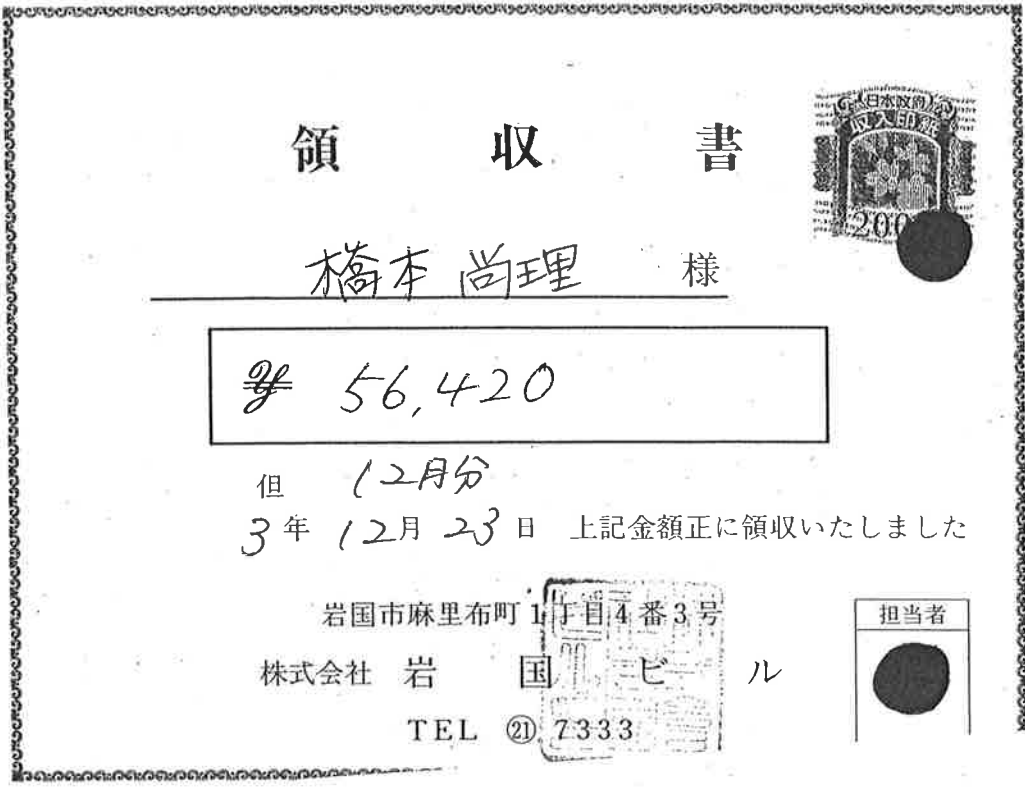 日本政府
収入印紙
200
領 収 書
橋本 尚理 様
¥ 56,420
但 12月分
3年 12月 23日 上記金額正に領収いたしました
岩国市麻里布町1丁目4番3号
株式会社 岩 国 ビ ル
TEL ㉑ 7333
担当者